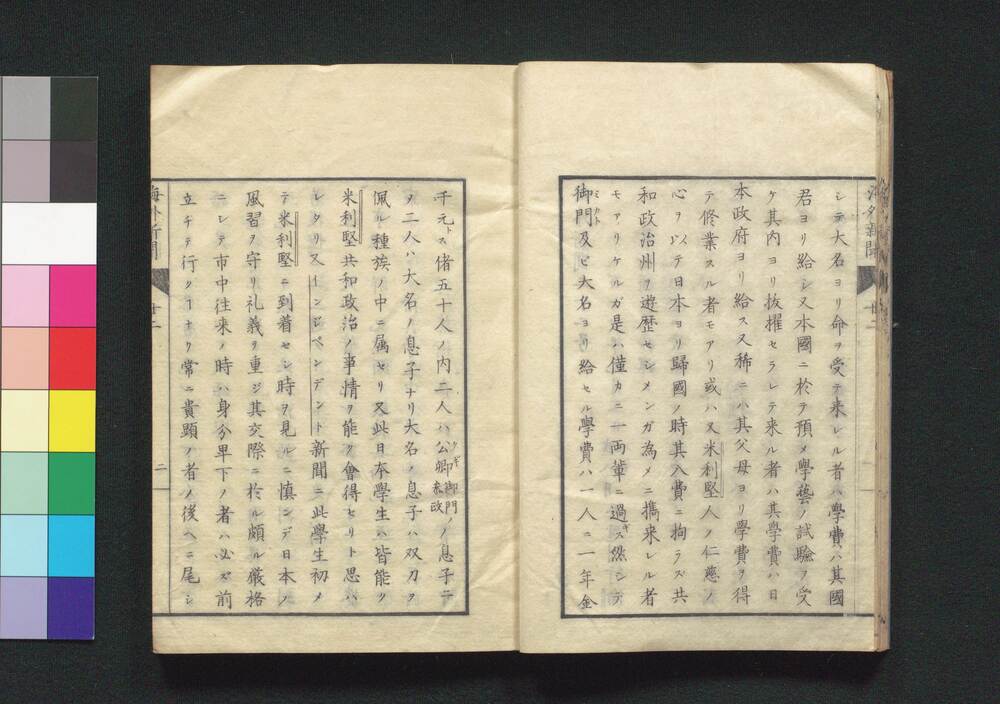 シテ大名ヨリ命ヲ受テ来レル者ハ學費ハ其國
君ヨリ給シ又本國ニ於テ預メ學藝ノ試驗ヲ受
ケ其内ヨリ抜擢セラレテ来ル者ハ其學費ハ日
本政府ヨリ給ス又稀ニハ其父母ヨリ學費ヲ得
テ修業スル者モアリ或ハ又米利堅人ノ仁慈ノ
心ヲ以テ日本ヨリ歸國ノ時其入費ニ拘ラズ共
和政治州ヲ遊歷セシメンガ為メニ携来レル者
モアリケルガ是ハ僅カニ一両輩ニ過ギス然シテ
御門及ビ大名ヨリ給セル學費ハ一人ニ一年金
ミカト
海外新聞
廿二
千元トス偖五十人ノ内二人ハ公卿御門ノ息子ニ
クギ
素政
ヲ二人ハ大名ノ息子ナリ大名ノ息子ハ双刀ヲ
佩ル種族ノ中ニ属セリ又此日本學生ハ皆能ク
米利堅共和政治ノ事情ヲ能ク會得セリト思ハ
レタリスインジペンデント新聞ニ此學生初メ
テ米利堅ニ到着セシ時ヲ見ルニ慎ンデ日本ノ
風習ヲ守リ礼義ヲ重ジ其交際ニ於ル頗ル厳格
ニシテ市中往来ノ時ハ身分卑下ノ者ハ必ズ前
立チテ行クコナク常ニ貴顕ノ者ノ後ヘニ尾シ
海外新聞
廿二
二